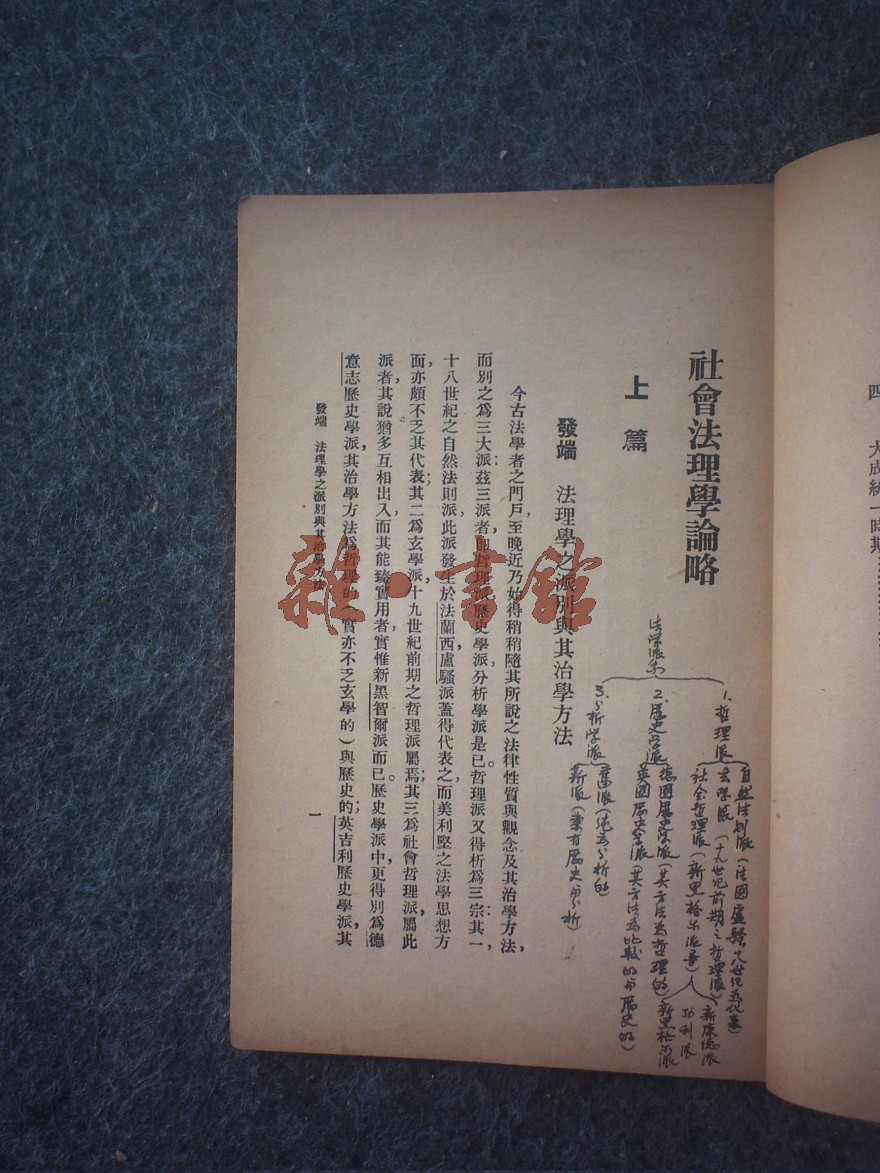 四 大成統一時期
社會法理學論略
上篇
發端 法理學之派別與其治學方法
今古法學者之門戶，至晚近乃始得稍稍隨其所說之法律性質與觀念及其治學方法，
而別之爲三大派：茲三派者，卽哲理派歷史學派，分析學派是已。哲理派又得析爲三宗：其一，
十八世紀之自然法則派，此派發生於法蘭西，盧騷派蓋得代表之，而美利堅之法學思想方
面，亦頗不乏其代表；其二爲玄學派，十九世紀前期之哲理派屬焉；其三爲社會哲理派，屬此
派者，其說猶多互相出入，而其能臻實用者，實惟新黑智爾派而已。歷史學派中，更得別爲德
意志歷史學派，其治學方法爲哲理的（實亦不乏玄學的）與歷史的；英吉利歷史學派，其
發端 法理學之派別與其治學方法
一
法學派別
1、哲理派
自然法則派（法國盧騷十八世紀爲代表）
玄學派（十九世紀前期之哲理派）
社會哲理派（新黑格尔派等）
新康德派
功利派
新黑格尔派
2、歷史学派
德國歷史学派（其方法爲哲理的）
英國歷史学派（其方法爲比較的与歷史的）
3、分析学派
舊派（純爲分析的）
新派（兼有歷史与分析）
雜·書館